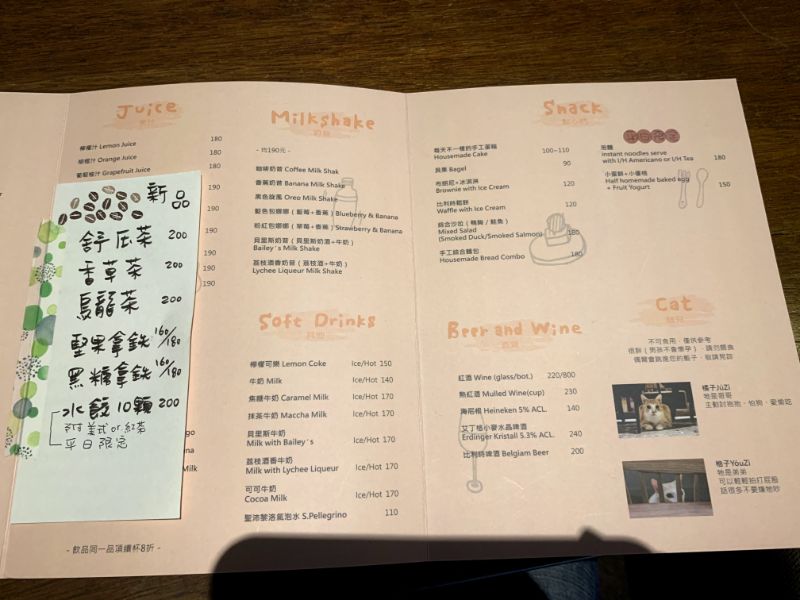 Juice
果汁
檸檬汁 Lemon Juice 180
柳橙汁 Orange Juice 180
葡萄柚汁 Grapefruit Juice 180
190
190
190
190
新品
舒瓜茶 200
香草茶 200
烏龍茶 200
堅果拿鐵 160/180
黑糖拿鐵 160/180
水餃10顆 200
附美式or紅茶
平日限定
- 飲品同一品項續杯8折 -
Milkshake
奶昔
- 均190元 -
咖啡奶昔 Coffee Milk Shak
香蕉奶昔 Banana Milk Shake
黑色旋風 Oreo Milk Shake
藍色包娜娜（藍莓+香蕉）Blueberry & Banana
粉紅包娜娜（草莓+香蕉）Strawberry & Banana
貝里斯奶昔（貝里斯奶酒+牛奶）
Bailey's Milk Shake
荔枝酒香奶昔（荔枝酒+牛奶）
Lychee Liqueur Milk Shake
Soft Drinks
其他
檸檬可樂 Lemon Coke Ice/Hot 150
牛奶 Milk Ice/Hot 140
焦糖牛奶 Caramel Milk Ice/Hot 170
抹茶牛奶 Maccha Milk Ice/Hot 170
貝里斯牛奶
Milk with Bailey's Ice/Hot 170
荔枝酒香牛奶
Milk with Lychee Liqueur Ice/Hot 170
可可牛奶
Cocoa Milk Ice/Hot 170
聖沛黎洛氣泡水 S.Pellegrino 110
Snack
點心類
每天不一樣的手工蛋糕
Housemade Cake 100~110
貝果 Bagel 90
布朗尼+冰淇淋
Brownie with Ice Cream 120
比利時鬆餅
Waffle with Ice Cream 120
綜合沙拉（鴨胸 / 鮭魚）
Mixed Salad
(Smoked Duck/Smoked Salmon) 180
手工綜合麵包
Housemade Bread Combo 180
泡麵
instant noodles serve
with I/H Americano or I/H Tea 180
Half homemade baked egg
+ Fruit Yogurt 150
Beer and Wine
酒類
紅酒 Wine (glass/bot.) 220/800
熱紅酒 Mulled Wine(cup) 230
海尼根 Heineken 5% ACL. 140
艾丁格小麥水晶啤酒
Erdinger Kristall 5.3% ACL. 240
比利時啤酒 Belgiam Beer 200
Cat
貓兒
不可食用，僅供參考
很胖（男孩不會懷孕），請勿餵食
偶爾會跳進您的籃子，敬請見諒
橘子JúZi
牠是哥哥
主動討抱抱，怕狗，愛偷吃
柚子YòuZi
牠是弟弟
可以輕輕拍打屁股
話很多不要嫌牠吵